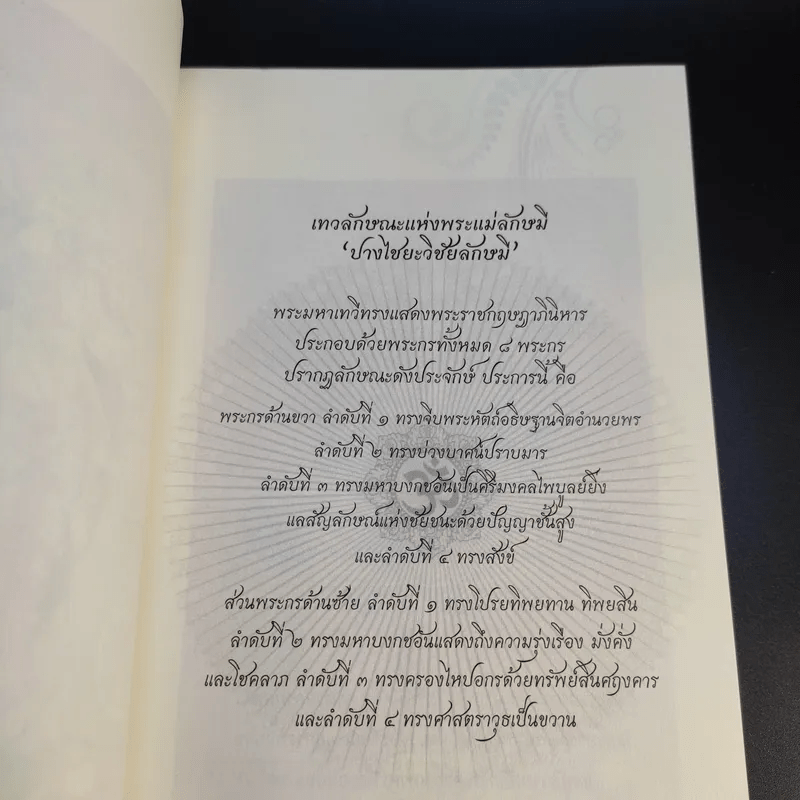 เทวลักษณะแห่งพระแม่ลักษมี
‘ปางไชยะวิชัยลักษมี’
พระมหาเทวีทรงแสดงพระราชกฤษฎาภินิหาร
ประกอบด้วยพระกรทั้งหมด ๘ พระกร
ปรากฏลักษณะดังประจักษ์ ประการนี้ คือ
พระกรด้านขวา ลำดับที่ ๑ ทรงจีบพระหัตถ์อธิษฐานจิตอำนวยพร
ลำดับที่ ๒ ทรงบ่วงบาศน์ปราบมาร
ลำดับที่ ๓ ทรงมหาบงกชอันเป็นศิริมงคลไพบูลย์ยิ่ง
แลสัญลักษณ์แห่งชัยชนะด้วยปัญญาชั้นสูง
และลำดับที่ ๔ ทรงสังข์
ส่วนพระกรด้านซ้าย ลำดับที่ ๑ ทรงโปรยทิพยทาน ทิพยสิน
ลำดับที่ ๒ ทรงมหาบงกชอันแสดงถึงความรุ่งเรือง มั่งคั่ง
และโชคลาภ ลำดับที่ ๓ ทรงครองไหปอกรด้วยทรัพย์สินศฤงคาร
และลำดับที่ ๔ ทรงศาสตราวุธเป็นขวาน